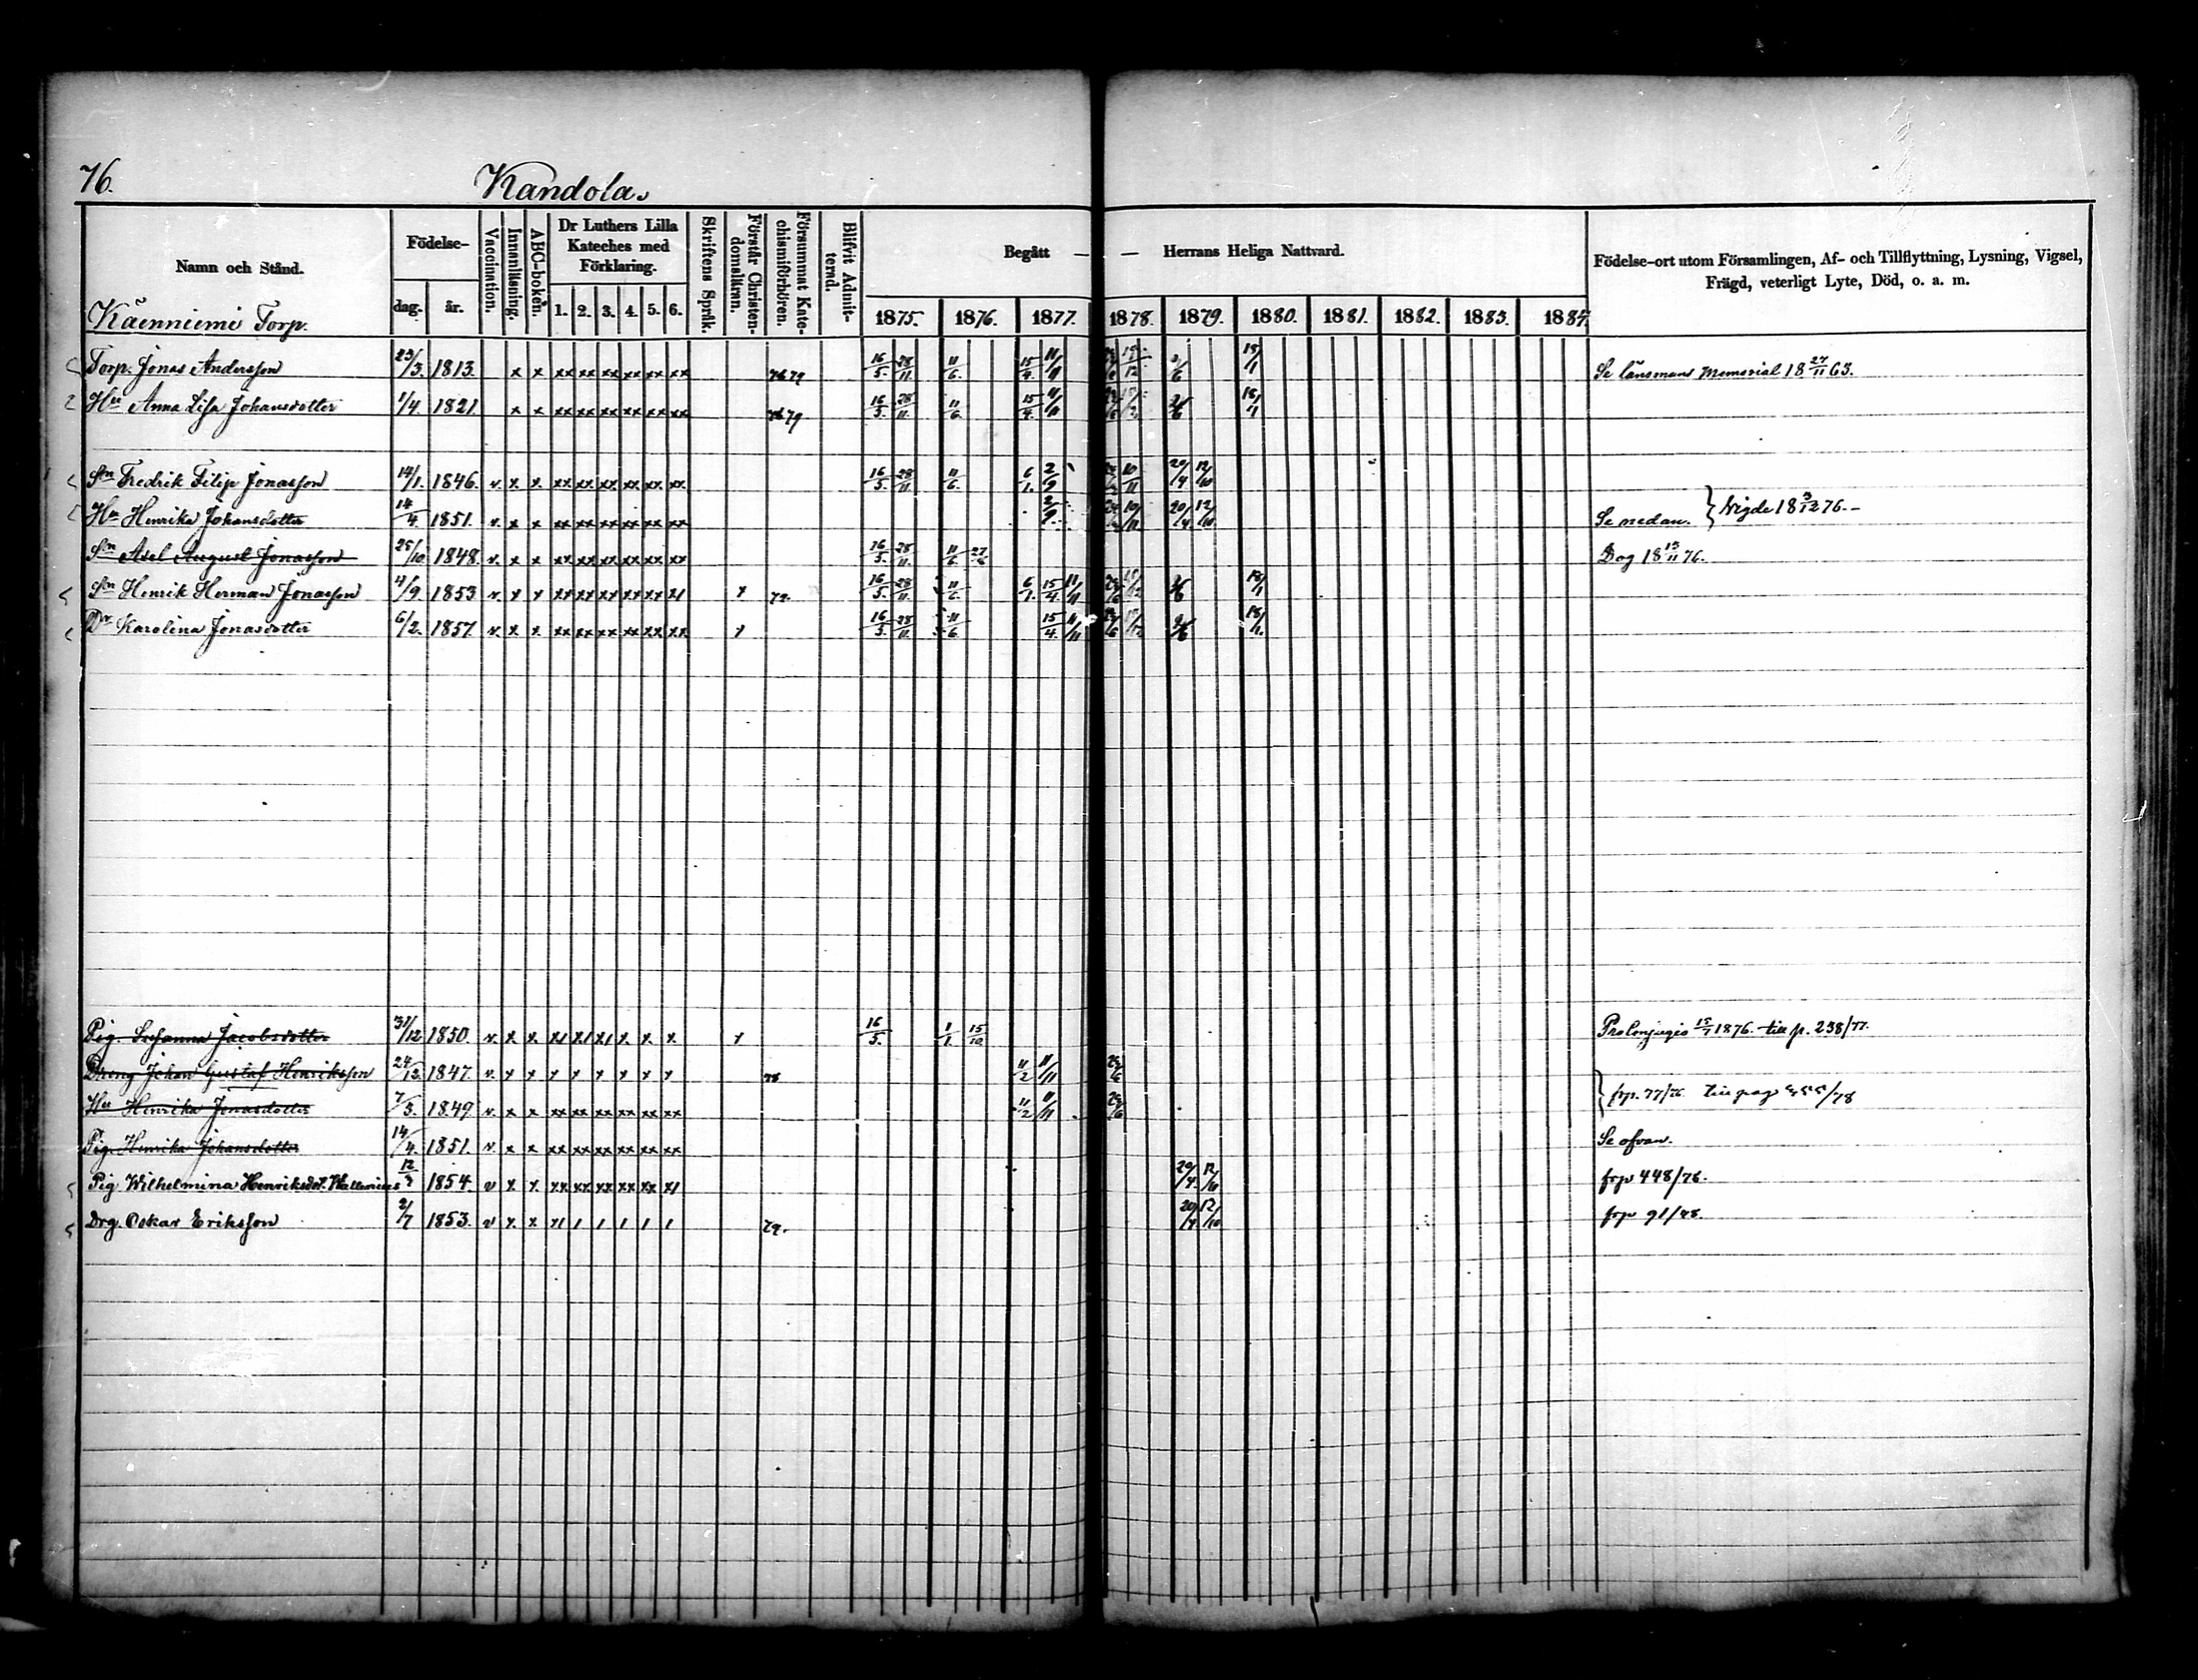 76.
Kandola.
Namn och Stånd.
Födelse-
dag. år.
Vaccination.
Innanläsning.
ABC-boken.
Dr Luthers Lilla
Kateches med
Förklaring.
1. 2. 3. 4. 5. 6.
Skriftens Språk.
Förstår Christen-
domsläran.
Försummat Kate-
chismiförhören.
Blifvit Admit-
terad.
Begått — — Herrans Heliga Nattvard.
1875. 1876. 1877. 1878. 1879. 1880. 1881. 1882. 1883. 1884.
Födelse-ort utom Församlingen, Af- och Tillflyttning, Lysning, Vigsel,
Frägd, veterligt Lyte, Död, o. a. m.
Käenniemi Torp.
Torp. Jonas Andersson 23/3. 1813. x x xx xx xx xx xx xx 16/5. 28/11. 11/6. 15/4. 11/11 18/1 Se länsmans Memorial 18 27/11 63.
Hu Anna Lisa Johansdotter 1/4. 1821. x x xx xx xx xx xx xx 16/5. 28/11. 11/6. 15/4. 11/11 18/1
Sn Fredrik Filip Jonasson 14/1. 1846. v. x x xx xx xx xx xx xx 16/5. 28/11. 11/6. 6/1. 2/9 10/11 20/4 12/10
Hu Henrika Johansdotter 14/4. 1851. v. x x xx xx xx xx xx xx 2/9. 10/11 20/4 12/10 Se nedan. } Vigde 18 3/12 76.-
Sn Axel August Jonasson 25/10 1848. v. x x xx xx xx xx xx xx 16/5. 28/11. 11/6 Dog 18 15/11 76.
Sn Henrik Herman Jonasson 4/9. 1853 v. x x xx xx xx xx xx x1 x 16/5. 28/11. 11/6. 6/1. 15/4. 11/11 18/1
Dr Karolina Jonasdotter 6/2. 1857. v. x x xx xx xx xx xx xx x 16/5. 28/11. 11/6. 15/4. 11/11 18/1.
Pig. Susanna Jacobsdotter 31/12 1850. v. x x x1 x1 x1 x x x x 16/5. 1/1. 15/10. 15/7 1876. till p. 238/77.
Dreng Johan Gustaf Henriksson 24/12. 1847. v. x x x x x x x x 11/2 11/11 frp. 77/76. till pag
Hu Henrika Jonasdotter 7/3. 1849. v. x x xx xx xx xx xx xx 11/2 11/11
Pig. Henrika Johansdotter 14/4. 1851. v. x x xx xx xx xx xx xx Se ofvan.
Pig Wilhelmina Henriksdot. 1854. v x x xx xx xx xx xx x1 20/4. 12/10 frp 448/76.
Drg. Oskar Eriksson 2/7 1853. v x x x1 1 1 1 1 1 79. 20/4 12/10 frp 91/78.